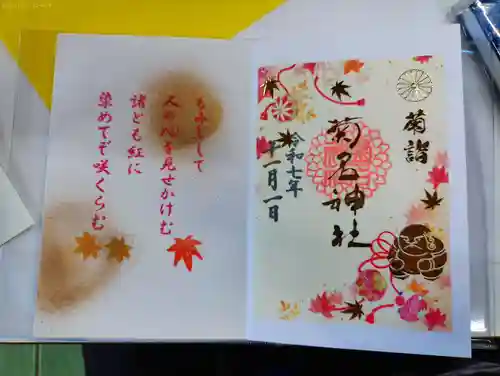 菊詣
菊名神社
令和七年
十一月一日
人の心を見せかけむ
諸ども紅に
染めてぞ咲くらむ